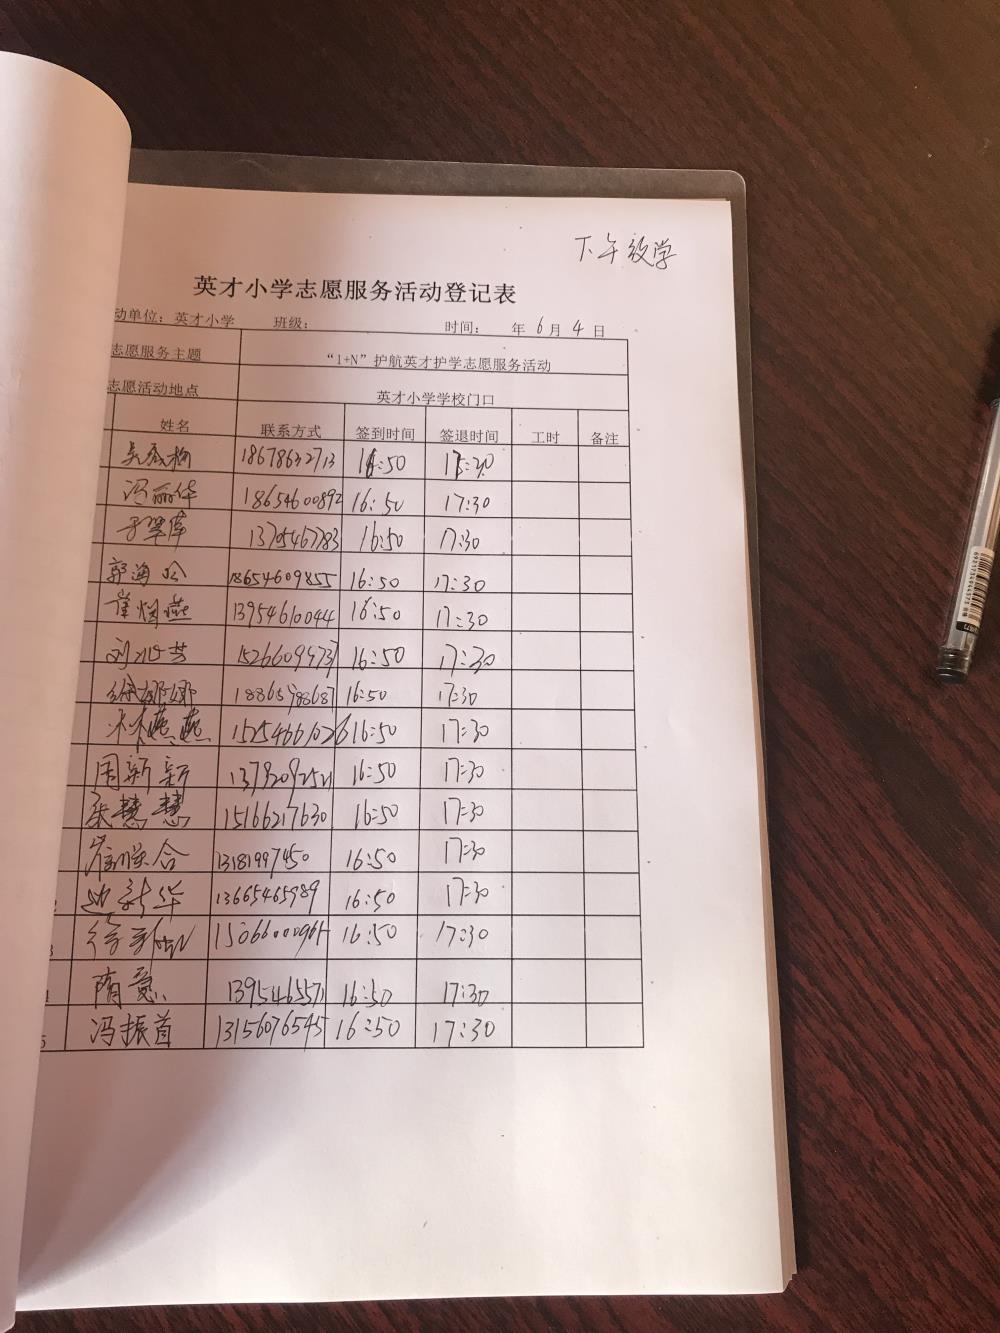 下午放学
英才小学志愿服务活动登记表
动单位：英才小学 班级： 时间： 年 6 月 4 日
志愿服务主题 “1+N”护航英才护学志愿服务活动
志愿活动地点 英才小学学校门口
姓名 联系方式 签到时间 签退时间 工时 备注
18678632713 16:50 17:30
冯丽华 18654600892 16:50 17:30
于翠萍 13705467783 16:50 17:30
郭海玲 18654609855 16:50 17:30
崔烟燕 13954610044 16:50 17:30
刘 芸 15266099737 16:50 17:30
徐娜娜 18865988687 16:50 17:30
宋燕燕 15254661026 16:50 17:30
周新新 13792092521 16:50 17:30
张慧慧 15166217630 16:50 17:30
合 13181997450 16:50 17:30
边新华 13665465989 16:50 17:30
徐 15066000965 16:50 17:30
隋意 13954655571 16:50 17:30
5 冯振首 13156076545 16:50 17:30